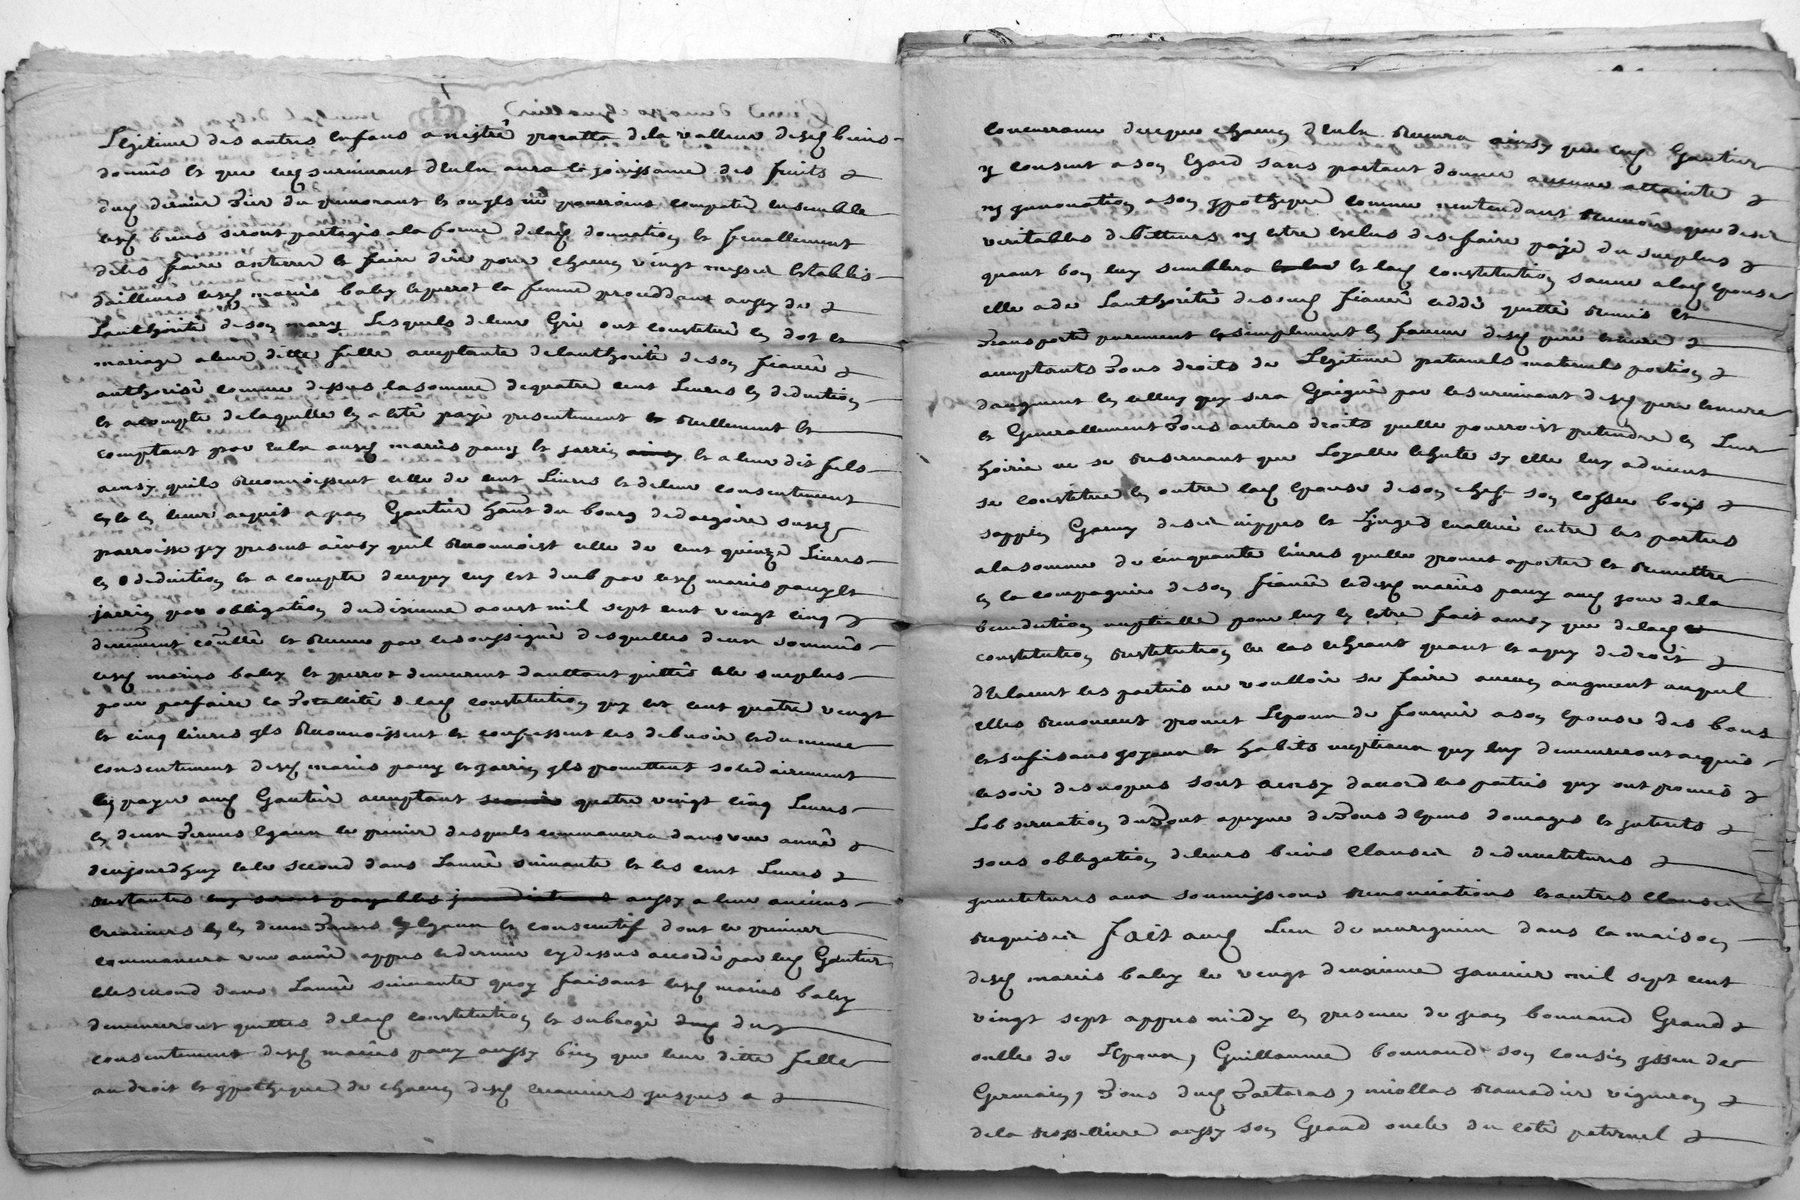 Legitime des autres enfans a nestre proratta dela valleur desd biens
donnés et que led survivant deulx aura la joüissance des fruits &
dud dernier
lesd biens seront partagés ala forme delad donnation et finallement
deles faire enterrer et faire dire pour chacun vingt messes Establis
dailleurs lesd mariés baley et perrot la femme proceddant aussy de &
Lauthorité deson mary Lesquels deleur Gré ont constitué en dot et
mariage a leur ditte fille acceptante delauthorité de son fiancé &
authorisé comme dessus la somme dequatre cent Livres en deduction
et acompte delaquelle en a été payé presentement et reellement et
comptant par eulx ausd mariés pauy et jarrin et a leur dit fils
ainsy quils reconnoissent celle de cent Livres et deleur consentement
et en leur acquit a jean Gautier hant du bourg dedargoire susd
parroisse icy present ainsy quil reconnoist celle de cent quinze Livres
en deduction et a compte deceque luy est deub par lesd mariés pauy et
jarrin par obligation dudixieme aoust mil sept cent vingt cinq &
deuement conllé et receue par lesoussigné desquelles deux sommes
lesd mariés baley et perrot demeurent daultant quittes et le surplus
pour parfaire la totallité delad constitution quy est cent quatre vingt
et cinq livres ils reconnoissent et confessent les debvoir et du mesme
consentement desd mariés pauy et jarrin ils promettent solidairement
payer aud Gautier acceptant quatre vingt cinq Livres
en deux termes egaux le premier desquels commancera dans une année &
daujourdhuy et le second dans Lannée suivante et les cent Livres &
restantes aussy a leur anciens
creanciers en deux termes egaux et consecutif dont le premier
commancera une année appres le dernier cydessus accordé par led Gautier
et le second dans Lannée suivante quoy faisant lesd mariés baley
demeureront quittes delad constitution et subrogé du
consentement desd mariés pauy aussy bien que leur ditte fille
au droit et ypotheque de chacun desd creanciers jusques a &
concurrance deceque chacun deulx recevra ainsy que led Gautier
y consent a son Egard sans partant donner aucune attainte &
ny innovation a son ypotheque comme nentendant
veritables debitteurs ny estre exclus desefaire payé du surplus &
quant bon luy semblera et lad constitution sauve alad epouse
elle a de Lauthorité desond fiancé ceddé quitté remis et
transporté purement et simplement en faveur desd pere et mere &
acceptants tous droits de Legitime paternels maternels portion &
daugment en celluy quy sera Gaigné par lesurvivant desd pere et mere
et Generallement tous autres droits quelle pourroist pretendre en Leur
hoirie ne se reservant que Loyalle echute sy elle luy advient
se constitue en outre lad epouse deson chef son coffre bois &
sappin Garny deses nippes et Linges evallué entre les parties
ala somme de cinquante livres quelle promet aporter et remettre
en la compagnie de son fiancé et desd mariés pauy aud jour dela
benediction nuptialle pour luy en estre fait ainsy que delad
constitution restitution le cas echeant quant et aquy dedroit &
declarent les parties ne voulloir se faire aucun augment auquel
elles renoncent promet Lepoux de fournir a son epouse des bons
et sufisans joyaux et habits nuptiaux quy luy demeureront acquis
lesoir desnopces sont ainsy daccord les parties quy ont promis &
Lobservation dutout apeyne detous depens domages et interets &
sous obligation deleurs biens Clauses
aux soumissions renonciations et autres Clauses
requises fait aud Lieu de dans la maison
desd mariés baley le vingt deuxieme janvier mil sept cent
vingt sept appres midy en presence de jean bonnand Grand &
oncle de Lepoux, Guillaume bonnand son cousin isseu de
Germain, tous dud tartaras, nicollas vigneron &
dela aussy son Grand oncle du coté paternel &